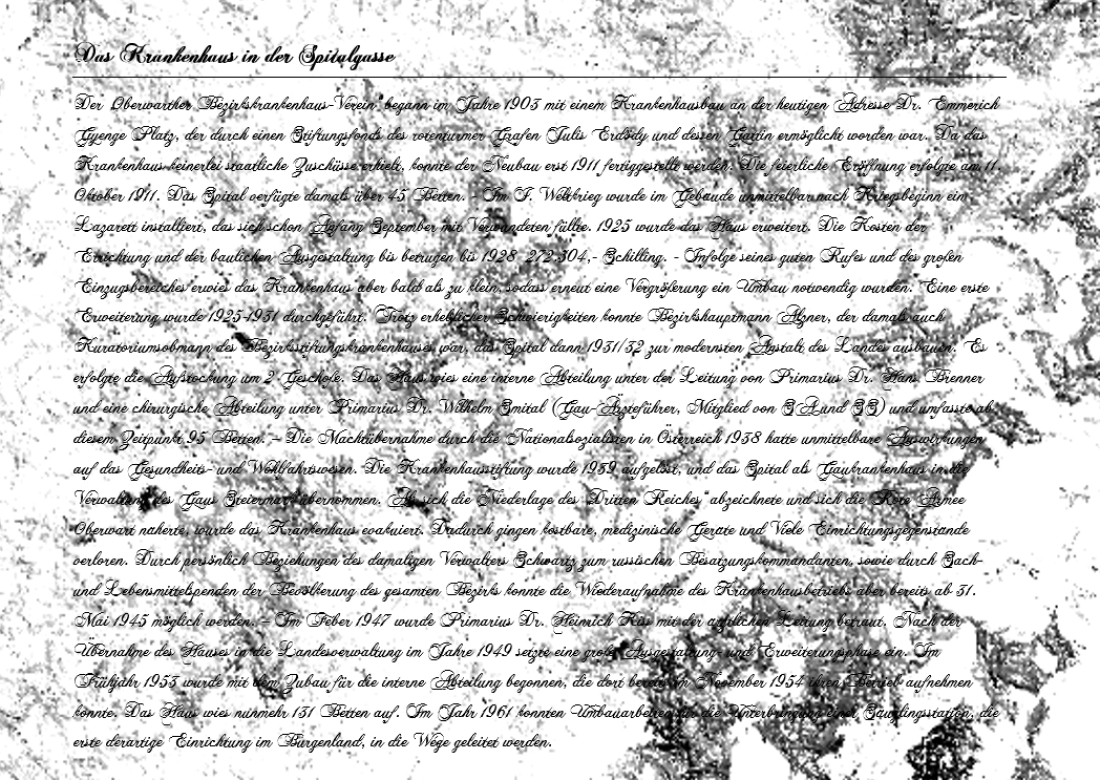 Das Krankenhaus in der Spitalgasse
Der Oberwarther Bezirkskrankenhaus-Verein" begann im Jahre 1903 mit einem Krankenhausbau an der heutigen Adresse Dr. Emmerich
Gyenge Platz, der durch einen Stiftungsfonds des rotenturmer Grafen Julis Erdödy und dessen Gattin ermöglicht worden war. Da das
Krankenhaus keinerlei staatliche Zuschüsse erhielt, konnte der Neubau erst 1911 fertiggestellt werden. Die feierliche Eröffnung erfolgte am 11.
Oktober 1911. Das Spital verfügte damals über 45 Betten. - Im I. Weltkrieg wurde im Gebäude unmittelbar nach Kriegsbeginn ein
Lazarett installiert, das sich schon Anfang September mit Verwundeten füllte. 1925 wurde das Haus erweitert. Die Kosten der
Errichtung und der baulichen Ausgestaltung bis betrugen bis 1928 272.304,- Schilling. - Infolge seines guten Rufes und des großen
Einzugsbereiches erwies das Krankenhaus aber bald als zu klein, sodass erneut eine Vergrößerung ein Umbau notwendig wurden. Eine erste
Erweiterung wurde 1925-1931 durchgeführt. Trotz erheblicher Schwierigkeiten konnte Bezirkshauptmann Atzner, der damals auch
Kuratoriumsobmann des Bezirksstiftungskrankenhauses war, das Spital dann 1931/32 zur modernsten Anstalt des Landes ausbauen. Es
erfolgte die Aufstockung um 2 Geschoße. Das Haus wies eine interne Abteilung unter der Leitung von Primarius Dr. Hans Brenner
und eine chirurgische Abteilung unter Primarius Dr. Wilhelm Smital (Gau-Ärzteführer, Mitglied von SA und SS) und umfasste ab
diesem Zeitpunkt 95 Betten. – Die Machtübernahme durch die Nationalsozialisten in Österreich 1938 hatte unmittelbare Auswirkungen
auf das Gesundheits- und Wohlfahrtswesen. Die Krankenhausstiftung wurde 1939 aufgelöst, und das Spital als Gaukrankenhaus in die
Verwaltung des Gaus Steiermark übernommen. Als sich die Niederlage des „Dritten Reiches" abzeichnete und sich die Rote Armee
Oberwart näherte, wurde das Krankenhaus evakuiert. Dadurch gingen kostbare, medizinische Geräte und Viele Einrichtungsgegenstände
verloren. Durch persönlich Beziehungen des damaligen Verwalters Schwartz zum russischen Besatzungskommandanten, sowie durch Sach-
und Lebensmittelspenden der Bevölkerung des gesamten Bezirks konnte die Wiederaufnahme des Krankenhausbetriebs aber bereits ab 31.
Mai 1945 möglich werden. – Im Feber 1947 wurde Primarius Dr. Heinrich Kiss mit der ärztlichen Leitung betraut. Nach der
Übernahme des Hauses in die Landesverwaltung im Jahre 1949 setzte eine große Ausgestaltung- und Erweiterungsphase ein. Im
Frühjahr 1953 wurde mit dem Zubau für die interne Abteilung begonnen, die dort bereits im November 1954 ihren Betrieb aufnehmen
konnte. Das Haus wies nunmehr 131 Betten auf. Im Jahr 1961 konnten Umbauarbeiten für die Unterbringung einer Säuglingsstation, die
erste derartige Einrichtung im Burgenland, in die Wege geleitet werden.